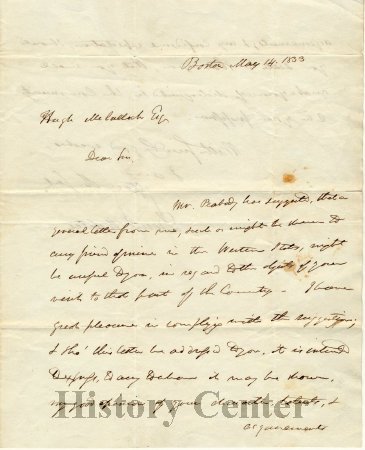 Boston May 14. 1833
Hugh McCulloch Esq
Dear Sir.
Mr. Peabody has suggested, that a
general letter from me, such as might be shown to
any friend of mine in the Western States, might
be useful to you, in regard to the objects of your
visit to that part of the Country - I have
great pleasure in complying with the suggestion;
& tho' this letter be addressed to you, it is intended
to express, to any to whom it may be shown,
my good opinion of your character, talents, &
acquirements
History Center